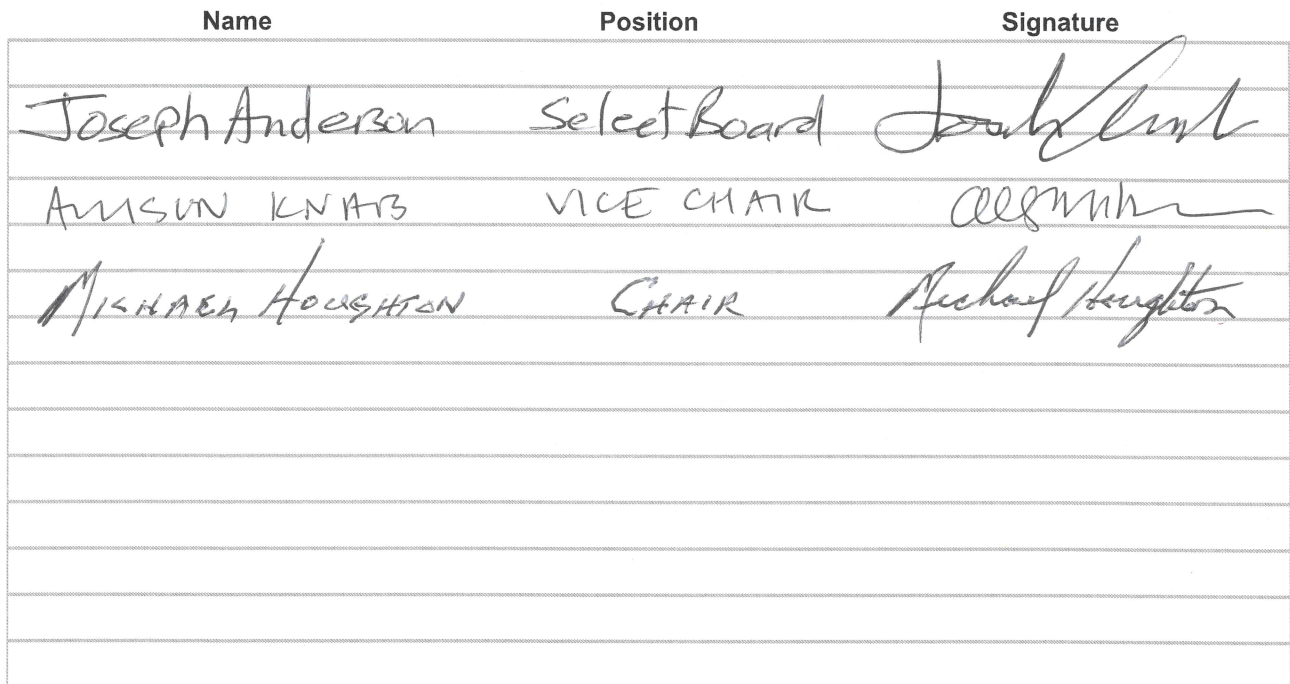 Name Position Signature
Joseph Anderson Select Board
ALLISON KNAB VICE CHAIR
MICHAEL HOUGHTON CHAIR Michael Houghton